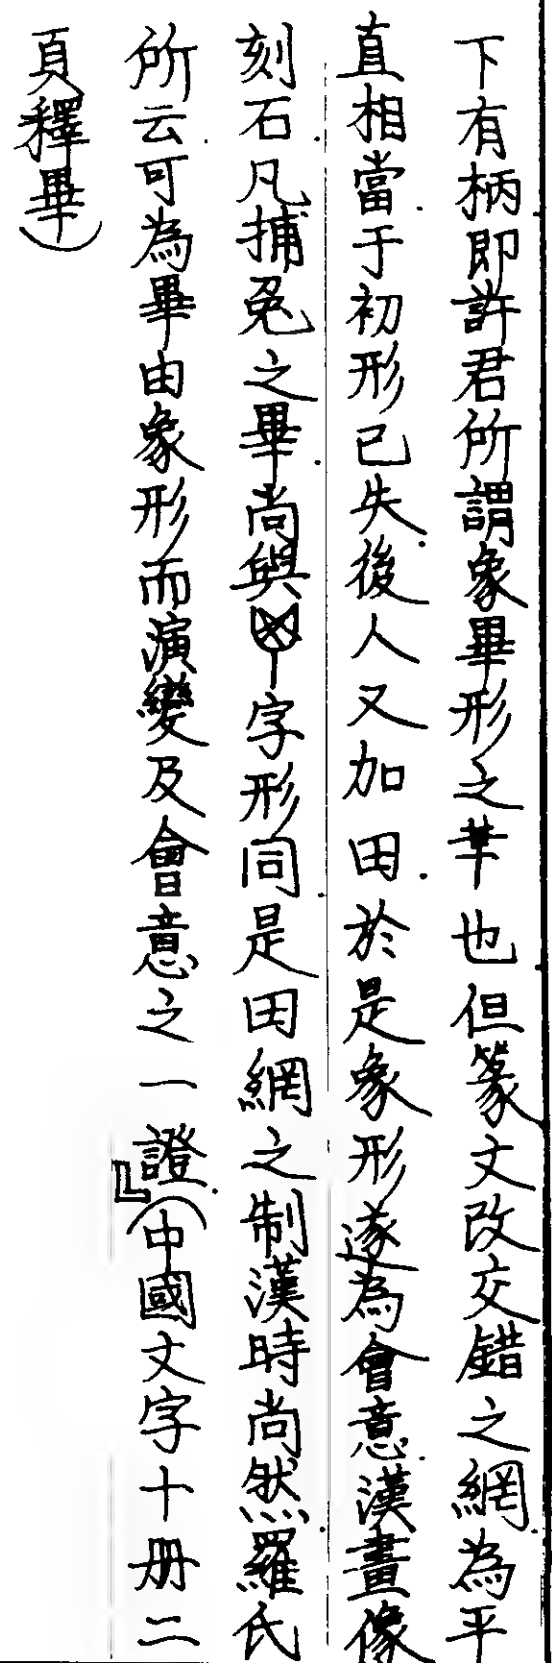 下有柄即許君所謂象畢形之𠦒也但篆文改交錯之網為平
直相當于初形已失後人又加田於是象形遂為會意漢畫像
刻石凡捕兔之畢尚與字形同是田網之制漢時尚然羅氏
所云可為畢由象形而演變及會意之一證』（中國文字十册二
頁釋畢）